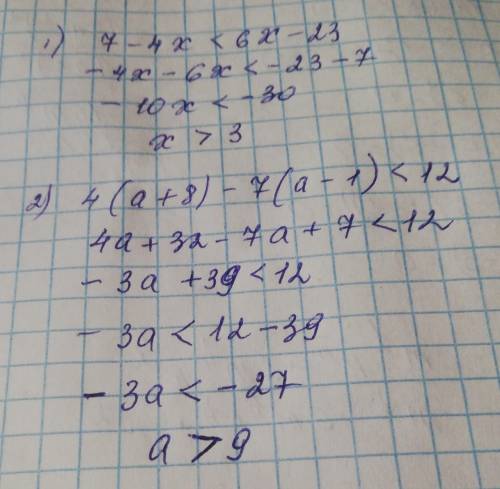 1) 7 - 4x < 6x - 23
- 4x - 6x < - 23 - 7
- 10x < - 30
x > 3
2) 4(a + 8) - 7(a - 1) < 12
4a + 32 - 7a + 7 < 12
- 3a + 39 < 12
- 3a < 12 - 39
- 3a < - 27
a > 9